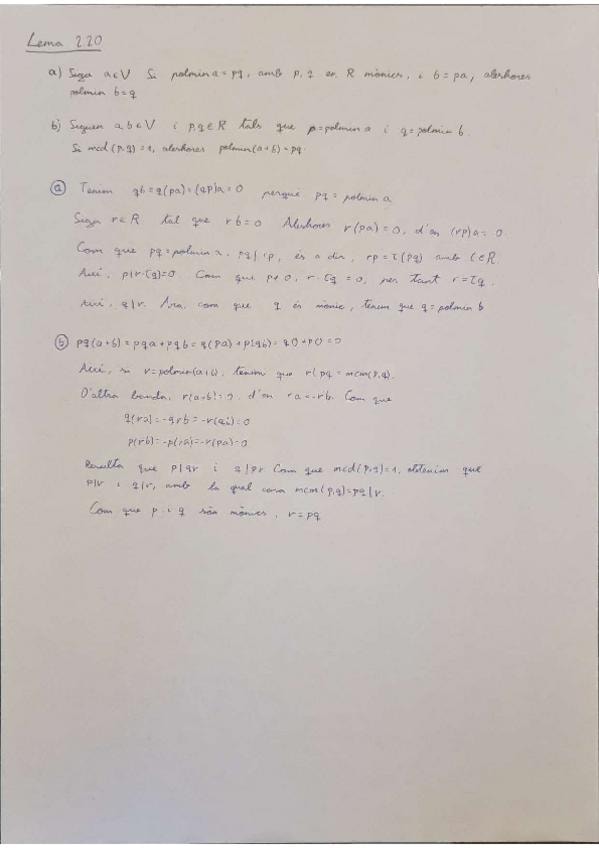 Lema 2.20
a) Sigui a∈V Si polmin a = pq, amb p, q en R mònics, i b = pa, aleshores
polmin b = q
b) Siguen a, b∈V i p, q∈R tals que p = polmin a i q = polmin b.
Si mcd(p,q) = 1, aleshores polmin(a+b) = pq.
ⓐ Tenim qb = q(pa) = (qp)a = 0 perquè pq = polmin a
Siga r∈R tal que rb = 0 Aleshores r(pa) = 0, d'on (rp)a = 0
Com que pq = polmin a, pq | rp, és a dir, rp = t(pq) amb t∈R.
Així, p(r-tq)=0. Com que p≠0, r-tq = 0, per tant r = tq.
Així, q|r. Ara, com que q és mònic, tenim que q = polmin b
ⓑ pq(a+b) = pqa + pqb = q(pa) + p(qb) = q0 + p0 = 0
Així, si r = polmin(a+b), tenim que r | pq = mcm(p,q).
D'altra banda, r(a+b) = 0, d'on ra = -rb. Com que
q(ra) = -qrb = -r(qb) = 0
p(rb) = -p(ra) = -r(pa) = 0
Resulta que p|qr i q|pr Com que mcd(p,q)=1, obtenim que
p|r i q|r, amb la qual cosa mcm(p,q)=pq|r.
Com que p i q són mònics, r = pq